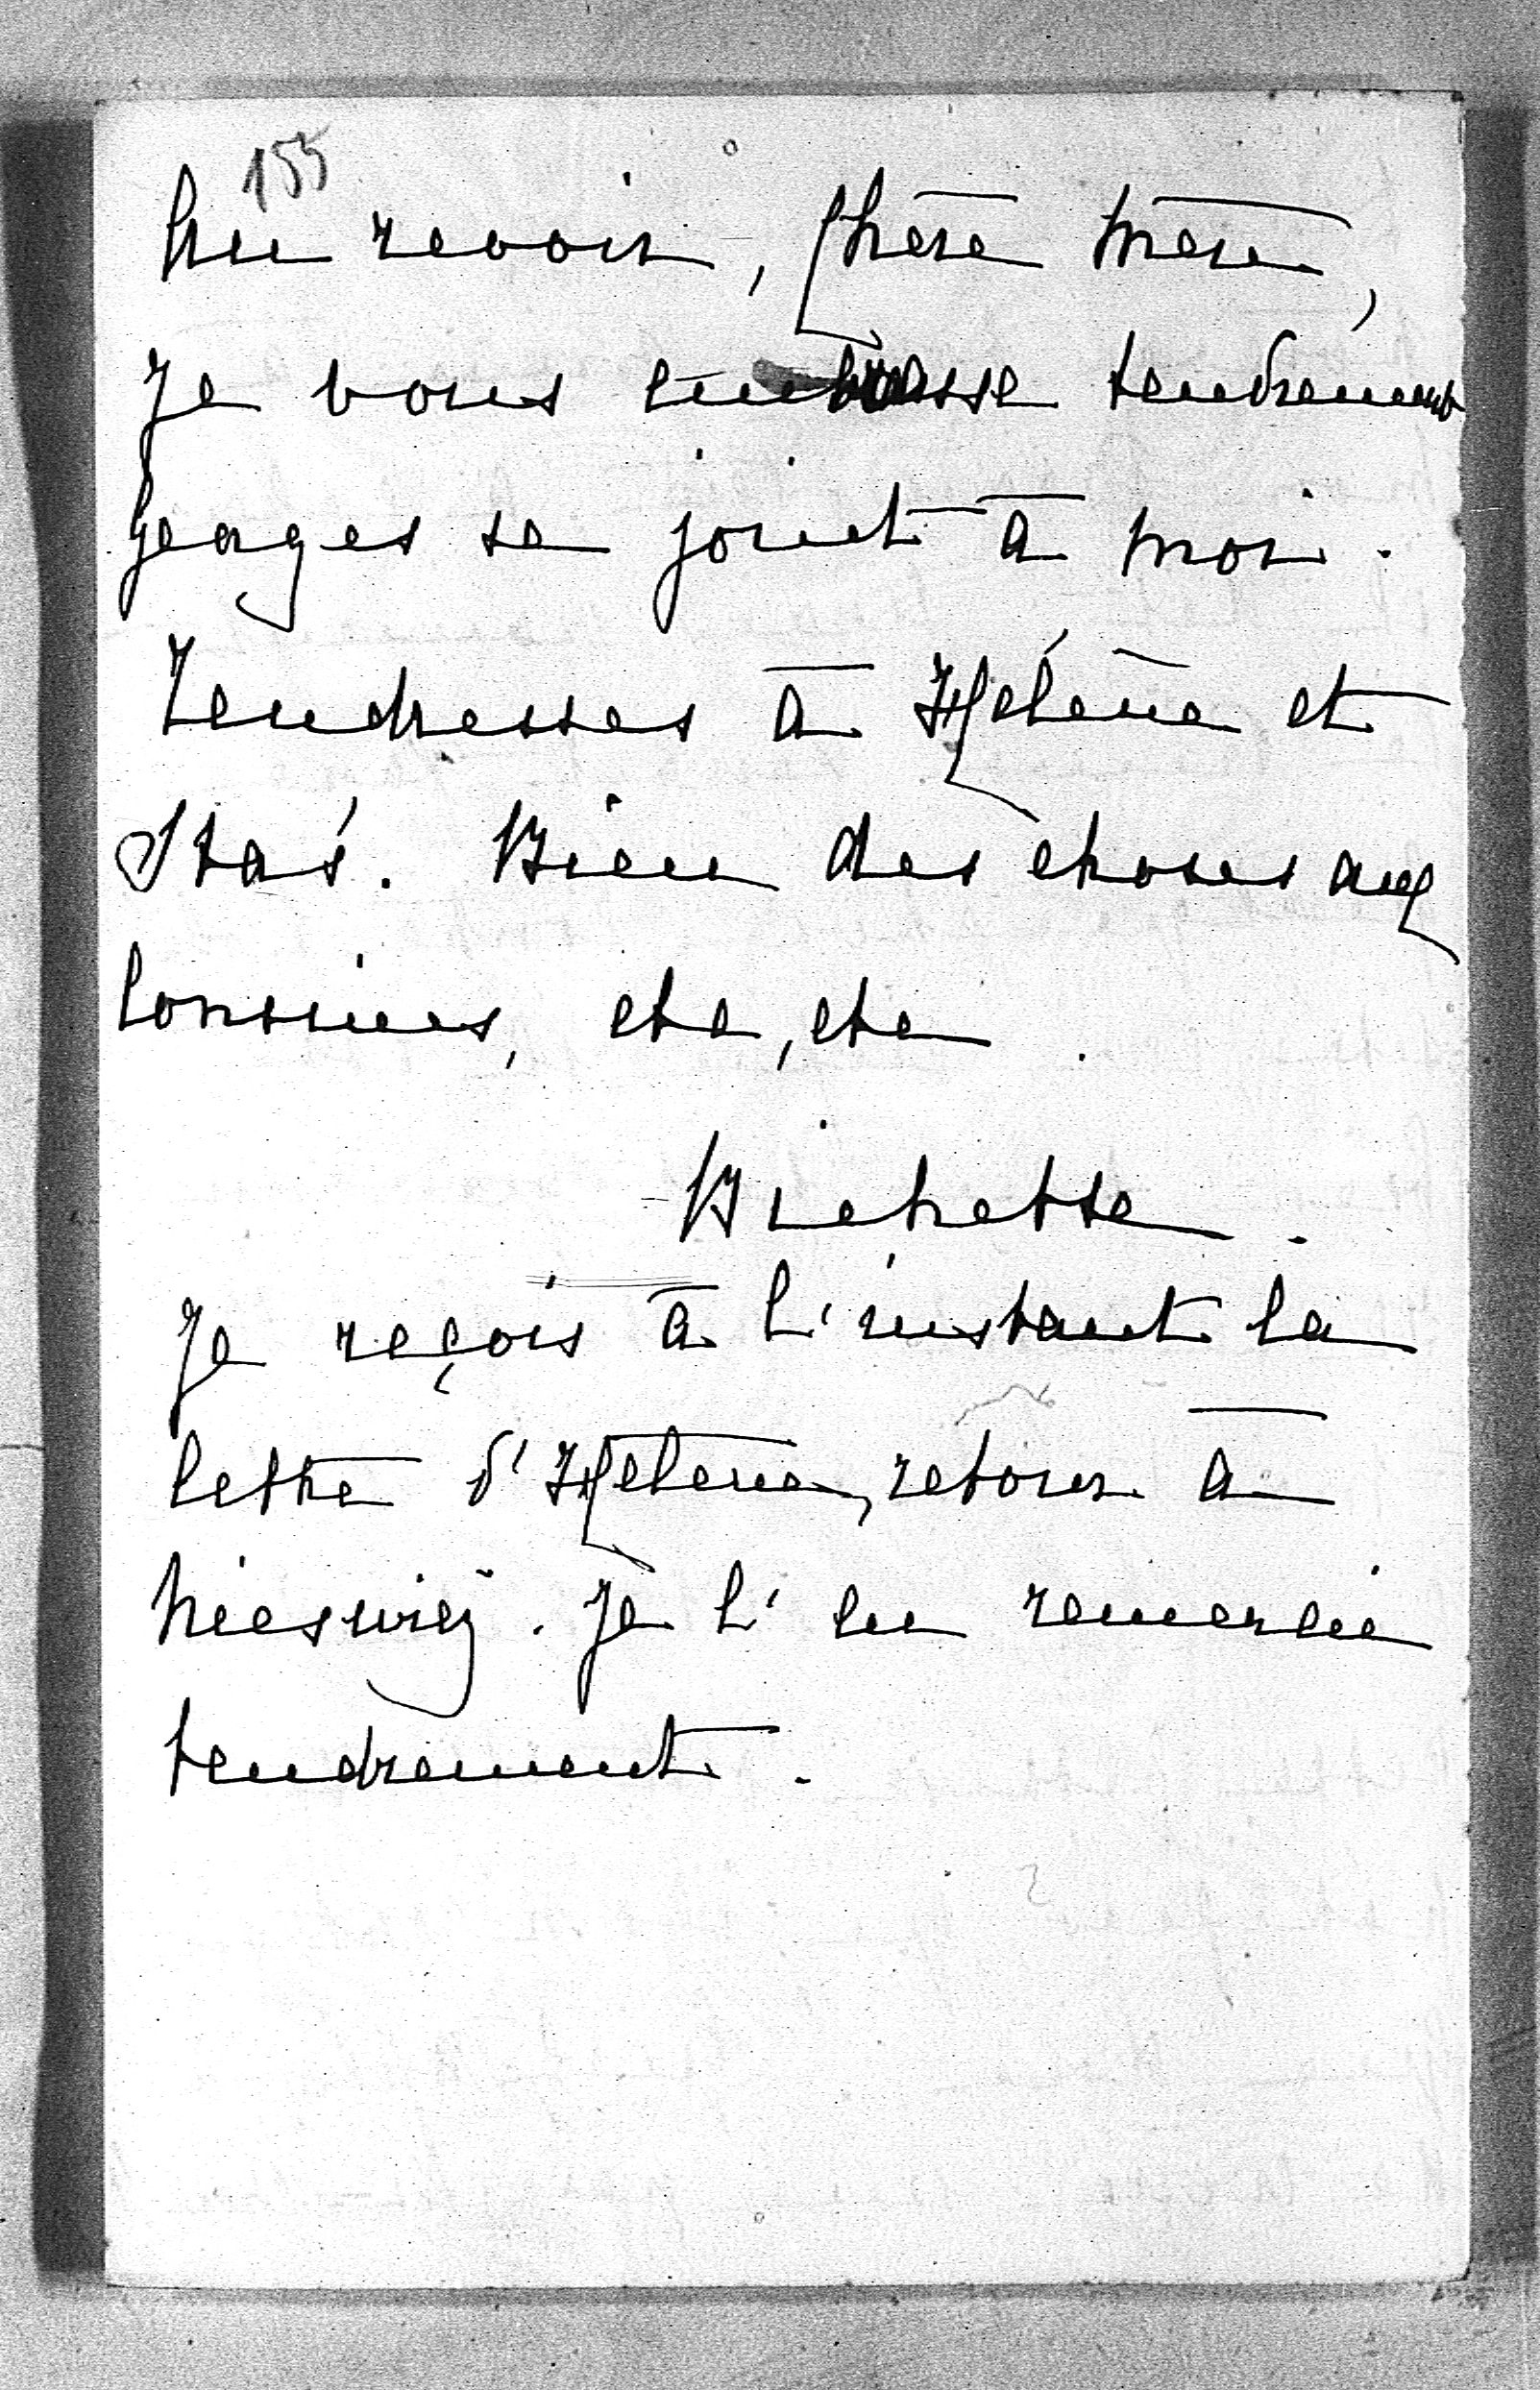 155
Au revoir, chère mère,
Je vous embrasse tendrement
Georges se joint à moi.
Tendresses à Hélène et
Staś. Bien des choses aux
Cousines, etc, etc.
Bichette.
Je reçois à l'instant la
lettre d'Hélène, retour à
Nieśwież. Je l'en remercie
tendrement.